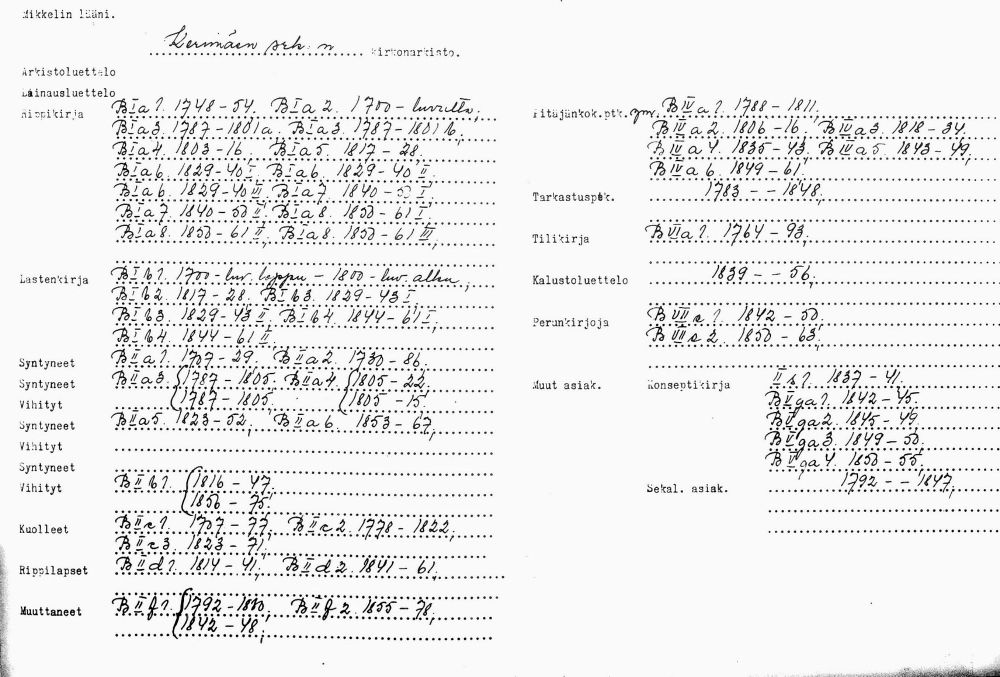 Mikkelin lääni.
Kerimäen srk:n kirkonarkisto.
Arkistoluettelo
Lainausluettelo
Rippikirja B I a 1. 1748-54. B I a 2. 1700-luvulta,
B I a 3. 1787-1801 a. B I a 3. 1787-1801 b,
B I a 4. 1803-16. B I a 5. 1817-28.
B I a 6. 1829-40 I, B I a 6. 1829-40 II.
B I a 6. 1829-40 III, B I a 7. 1840-50 I,
B I a 7. 1840-50 II, B I a 8. 1850-61 I,
B I a 8. 1850-61 II, B I a 8. 1850-61 III,
Lastenkirja B I b 1. 1700-luv. loppu - 1800-luv. alku,
B I b 2. 1817-28. B I b 3. 1829-43 I,
B I b 3. 1829-43 II, B I b 4. 1844-61 I,
B I b 4. 1844-61 II,
Syntyneet B II a 1. 1707-29. B II a 2. 1730-86.
Syntyneet B II a 3. 1787-1805. B II a 4. 1805-22.
Vihityt 1787-1805. 1805-15.
Syntyneet B II a 5. 1823-52, B II a 6. 1853-67,
Vihityt
Syntyneet
Vihityt B II b 1. 1816-47.
1850-75.
Kuolleet B II c 1. 1707-77, B II c 2. 1778-1822,
B II c 3. 1823-71,
Rippilapset B II d 1. 1814-41, B II d 2. 1841-61,
Muuttaneet B II f 1. 1792-1880, B II f 2. 1855-78,
1842-48,
Pitäjänkok.ptk. ym. B IV a 1. 1788-1811.
B IV a 2. 1806-16. B IV a 3. 1818-34.
B IV a 4. 1835-43. B IV a 5. 1843-49,
B IV a 6. 1849-61.
Tarkastuspök. 1783 - - 1848,
Tilikirja B VII a 1. 1764-93,
Kalustoluettelo 1839 - - 56,
Perunkirjoja B VIII s 1. 1842-50.
B VIII s 2. 1850-63,
Muut asiak. Konseptikirja II s 1. 1837-41.
B V ga 1. 1842-45.
B V ga 2. 1845-49.
B V ga 3. 1849-50.
B V ga 4. 1850-55.
Sekal. asiak. 1792 - - 1847,